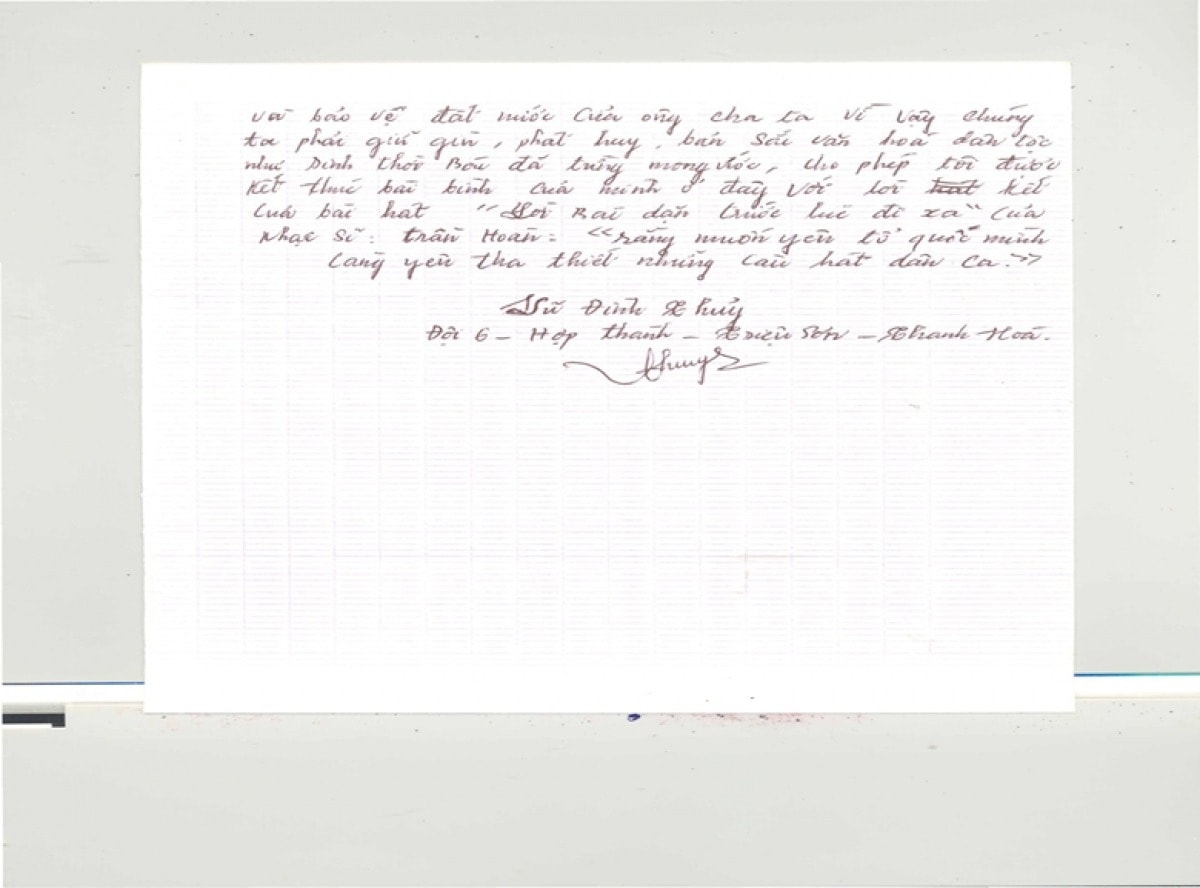 và bảo vệ đất nước của ông cha ta vì vậy chúng
ta phải giữ gìn, phát huy, bản sắc văn hoá dân tộc
như Dinh thời Bác đã từng mong ước, cho phép tôi được
kết thúc bài bình của mình ở đây với lời hát kết
của bài hát "Lời Bác dặn trước lúc đi xa" của
nhạc sĩ: trần Hoàn: "rằng muốn yêu tổ quốc mình
càng yêu tha thiết những câu hát dân ca."
Đình Thuỷ
Đội 6 - Hợp thành - Triệu Sơn - Thanh Hoá.
Thuỷ